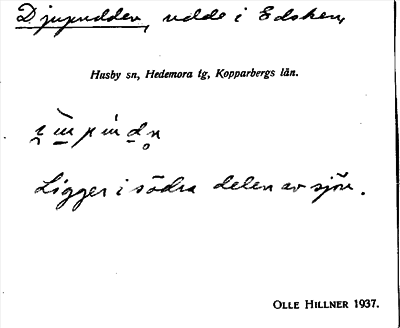 Djupudden, udde i Edsken,
Husby sn, Hedemora tg, Kopparbergs län.
Ligger i södra delen av sjön.
OLLE HILLNER 1937.